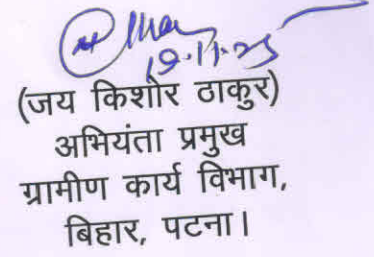 19.11.25
(जय किशोर ठाकुर)
अभियंता प्रमुख
ग्रामीण कार्य विभाग,
बिहार, पटना।